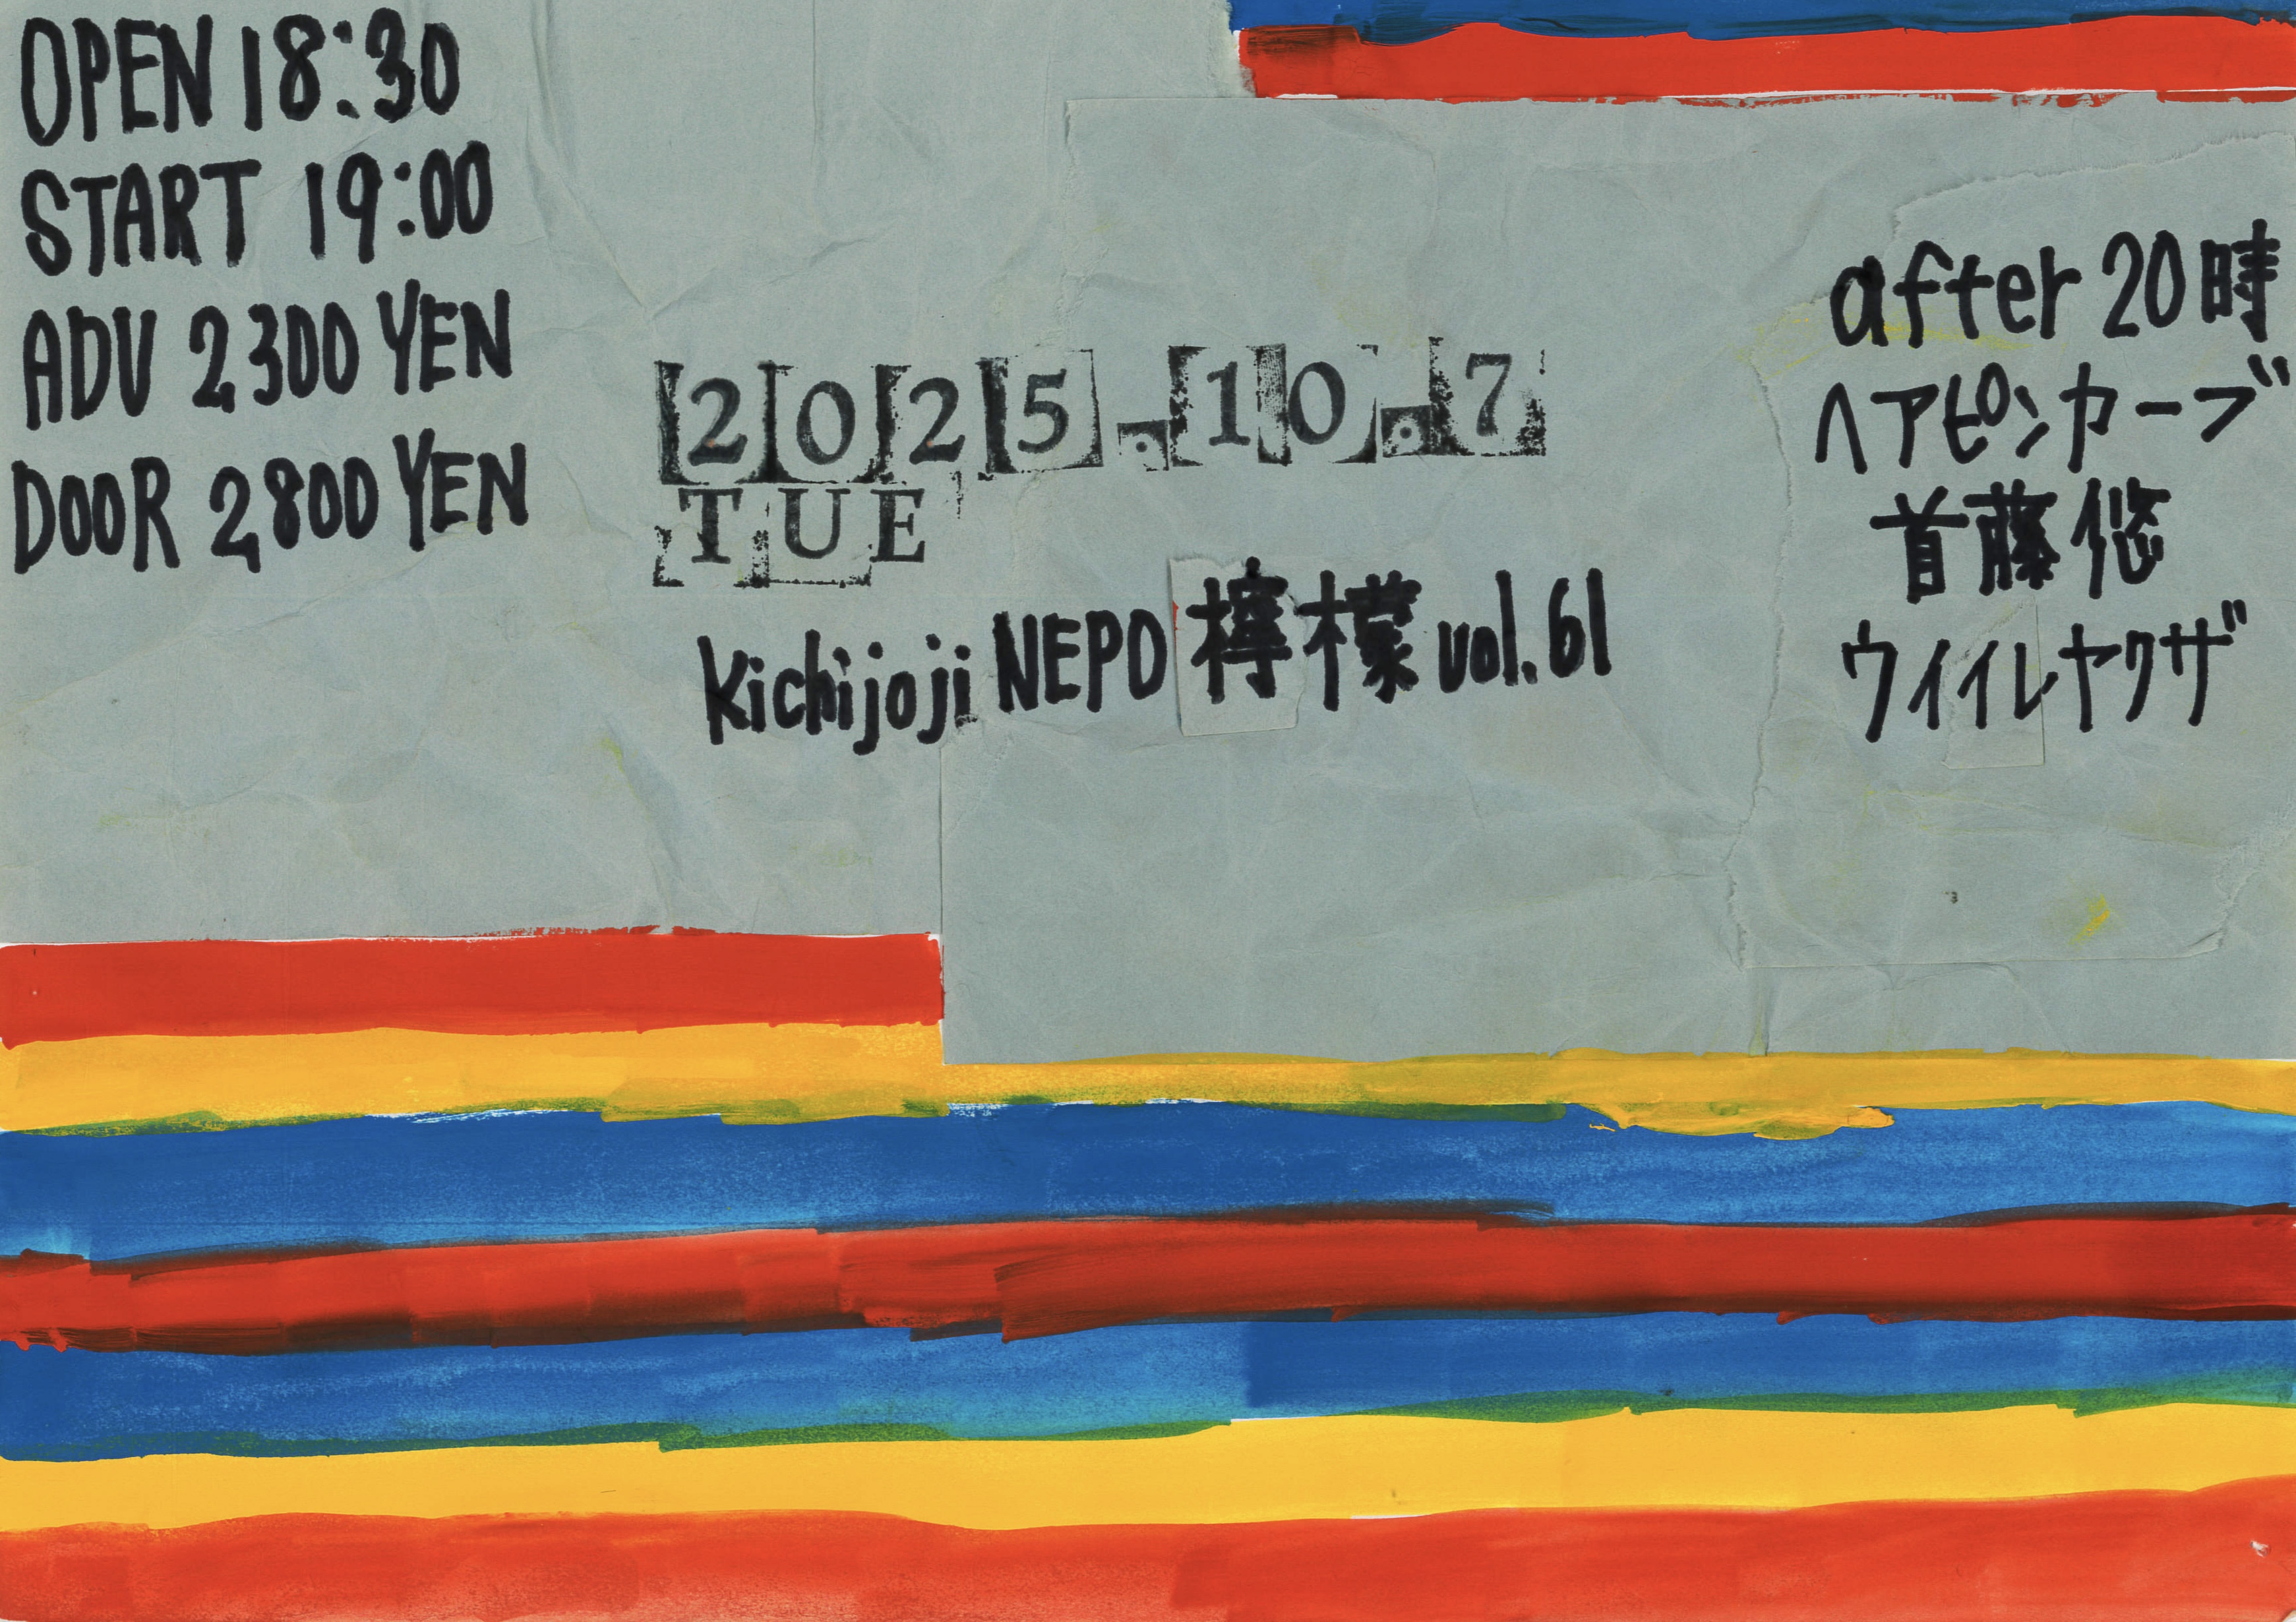 OPEN 18:30
START 19:00
ADV 2,300 YEN
DOOR 2,800 YEN
2025.10.7
TUE
Kichijoji NEPO 檸檬 vol.61
after 20時
ヘアピンカーブ
首藤悠
ウイイレヤクザ